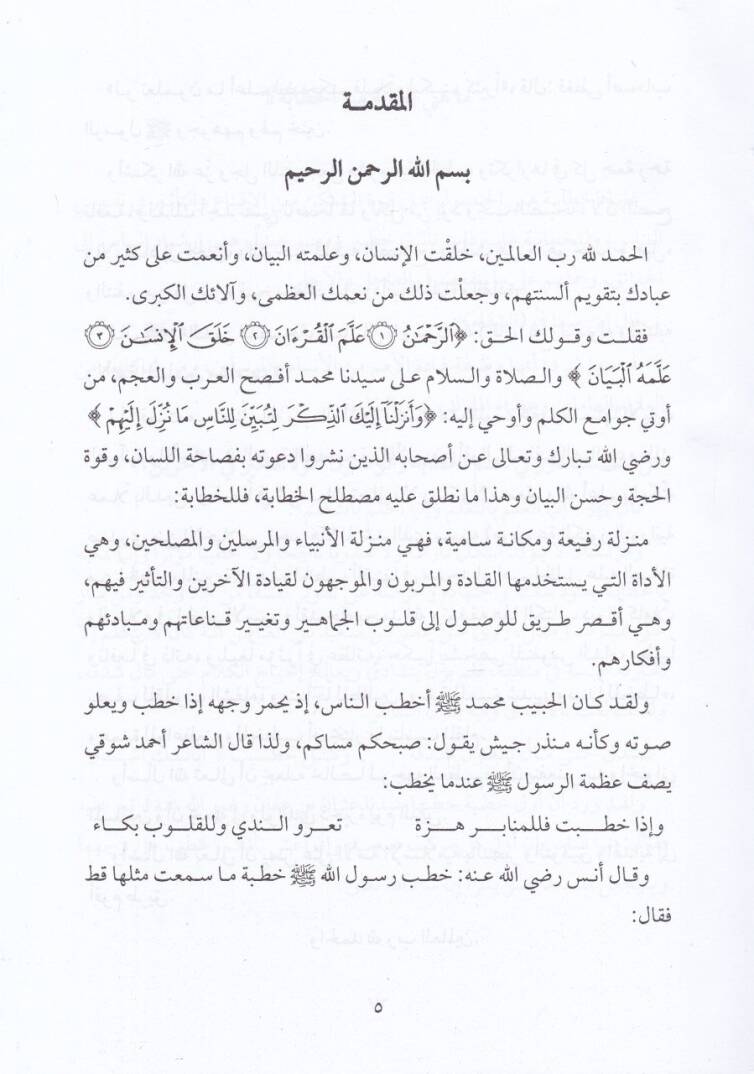 المقدمة
بسم الله الرحمن الرحيم
الحمد لله رب العالمين، خلقْت الإنسان، وعلمته البيان، وأنعمت على كثير من
عبادك بتقويم ألسنتهم، وجعلْت ذلك من نعمك العظمى، وآلائك الكبرى.
فقلت وقولك الحق: ﴿ٱلرَّحْمَٰنُ ۝١ عَلَّمَ ٱلْقُرْءَانَ ۝٢ خَلَقَ ٱلْإِنسَٰنَ ۝٣
عَلَّمَهُ ٱلْبَيَانَ﴾ والصلاة والسلام على سيدنا محمد أفصح العرب والعجم، من
أوتي جوامع الكلم وأوحي إليه: ﴿وَأَنزَلْنَآ إِلَيْكَ ٱلذِّكْرَ لِتُبَيِّنَ لِلنَّاسِ مَا نُزِّلَ إِلَيْهِمْ﴾
ورضي الله تبارك وتعالى عن أصحابه الذين نشروا دعوته بفصاحة اللسان، وقوة
الحجة وحسن البيان وهذا ما نطلق عليه مصطلح الخطابة، فللخطابة:
منزلة رفيعة ومكانة سامية، فهي منزلة الأنبياء والمرسلين والمصلحين، وهي
الأداة التي يستخدمها القادة والمربون والموجهون لقيادة الآخرين والتأثير فيهم،
وهي أقصر طريق للوصول إلى قلوب الجماهير وتغيير قناعاتهم ومبادئهم
وأفكارهم.
ولقد كان الحبيب محمد ﷺ أخطب الناس، إذ يحمر وجهه إذا خطب ويعلو
صوته وكأنه منذر جيش يقول: صبحكم مساكم، ولذا قال الشاعر أحمد شوقي
يصف عظمة الرسول ﷺ عندما يخطب:
وإذا خطبت فللمنابر هزة تعرو الندي وللقلوب بكاء
وقال أنس رضي الله عنه: خطب رسول الله ﷺ خطبة ما سمعت مثلها قط
فقال:
٥